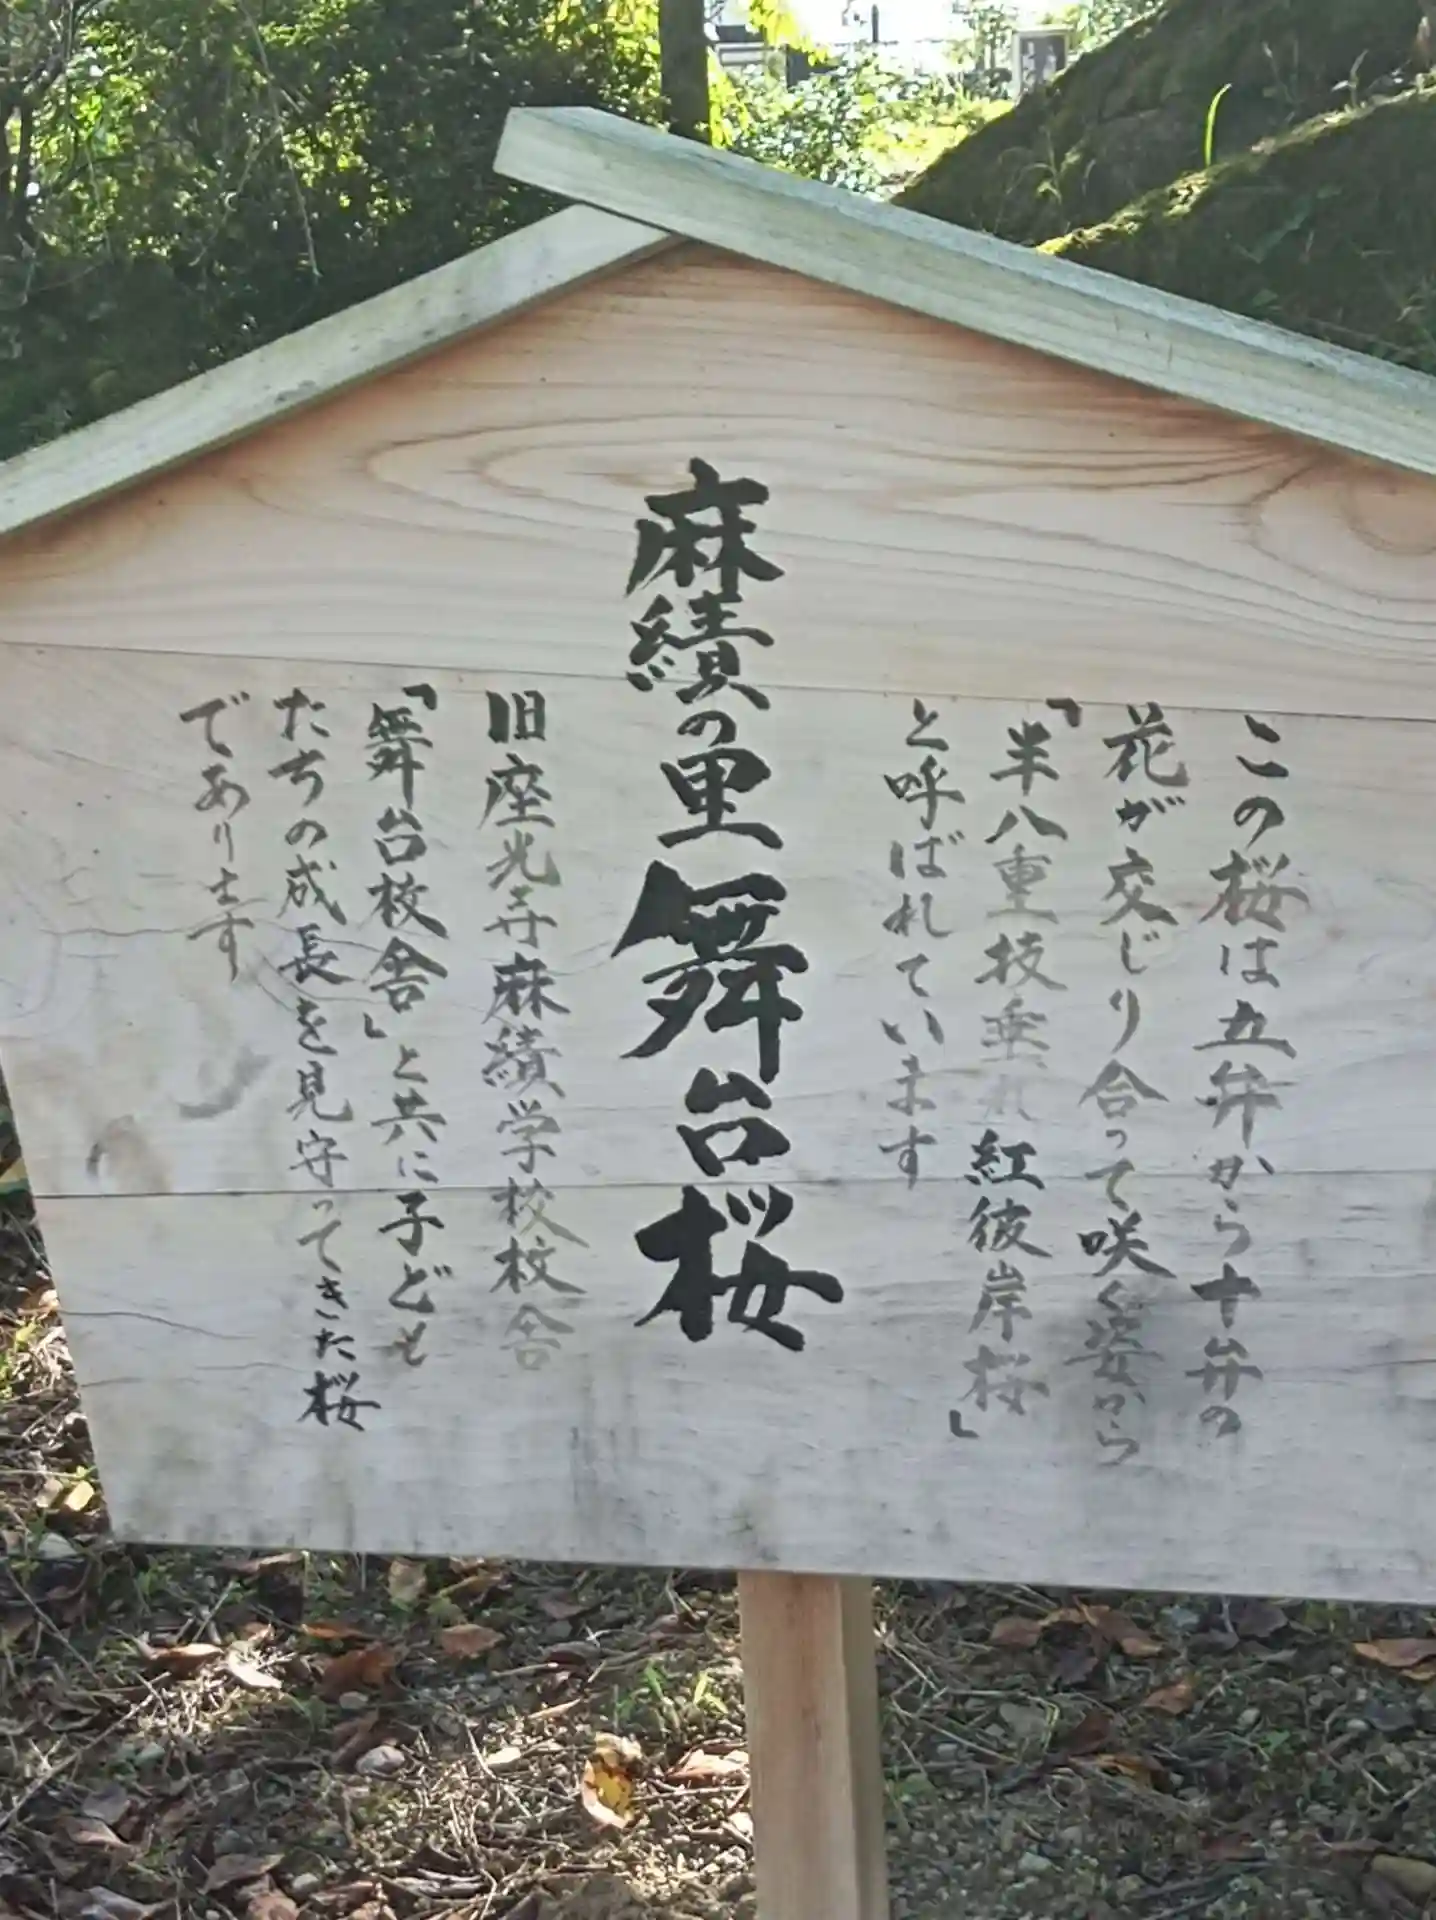 この桜は五弁から十弁の
花が交じり合って咲く姿から
「半八重枝垂れ紅彼岸桜」
と呼ばれています
麻績の里舞台桜
旧座光寺麻績学校校舎
「舞台校舎」と共に子ども
たちの成長を見守ってきた桜
であります